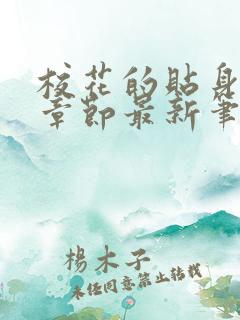 校花的貼身
章節最新筆
楊木子
未经同意禁止转载